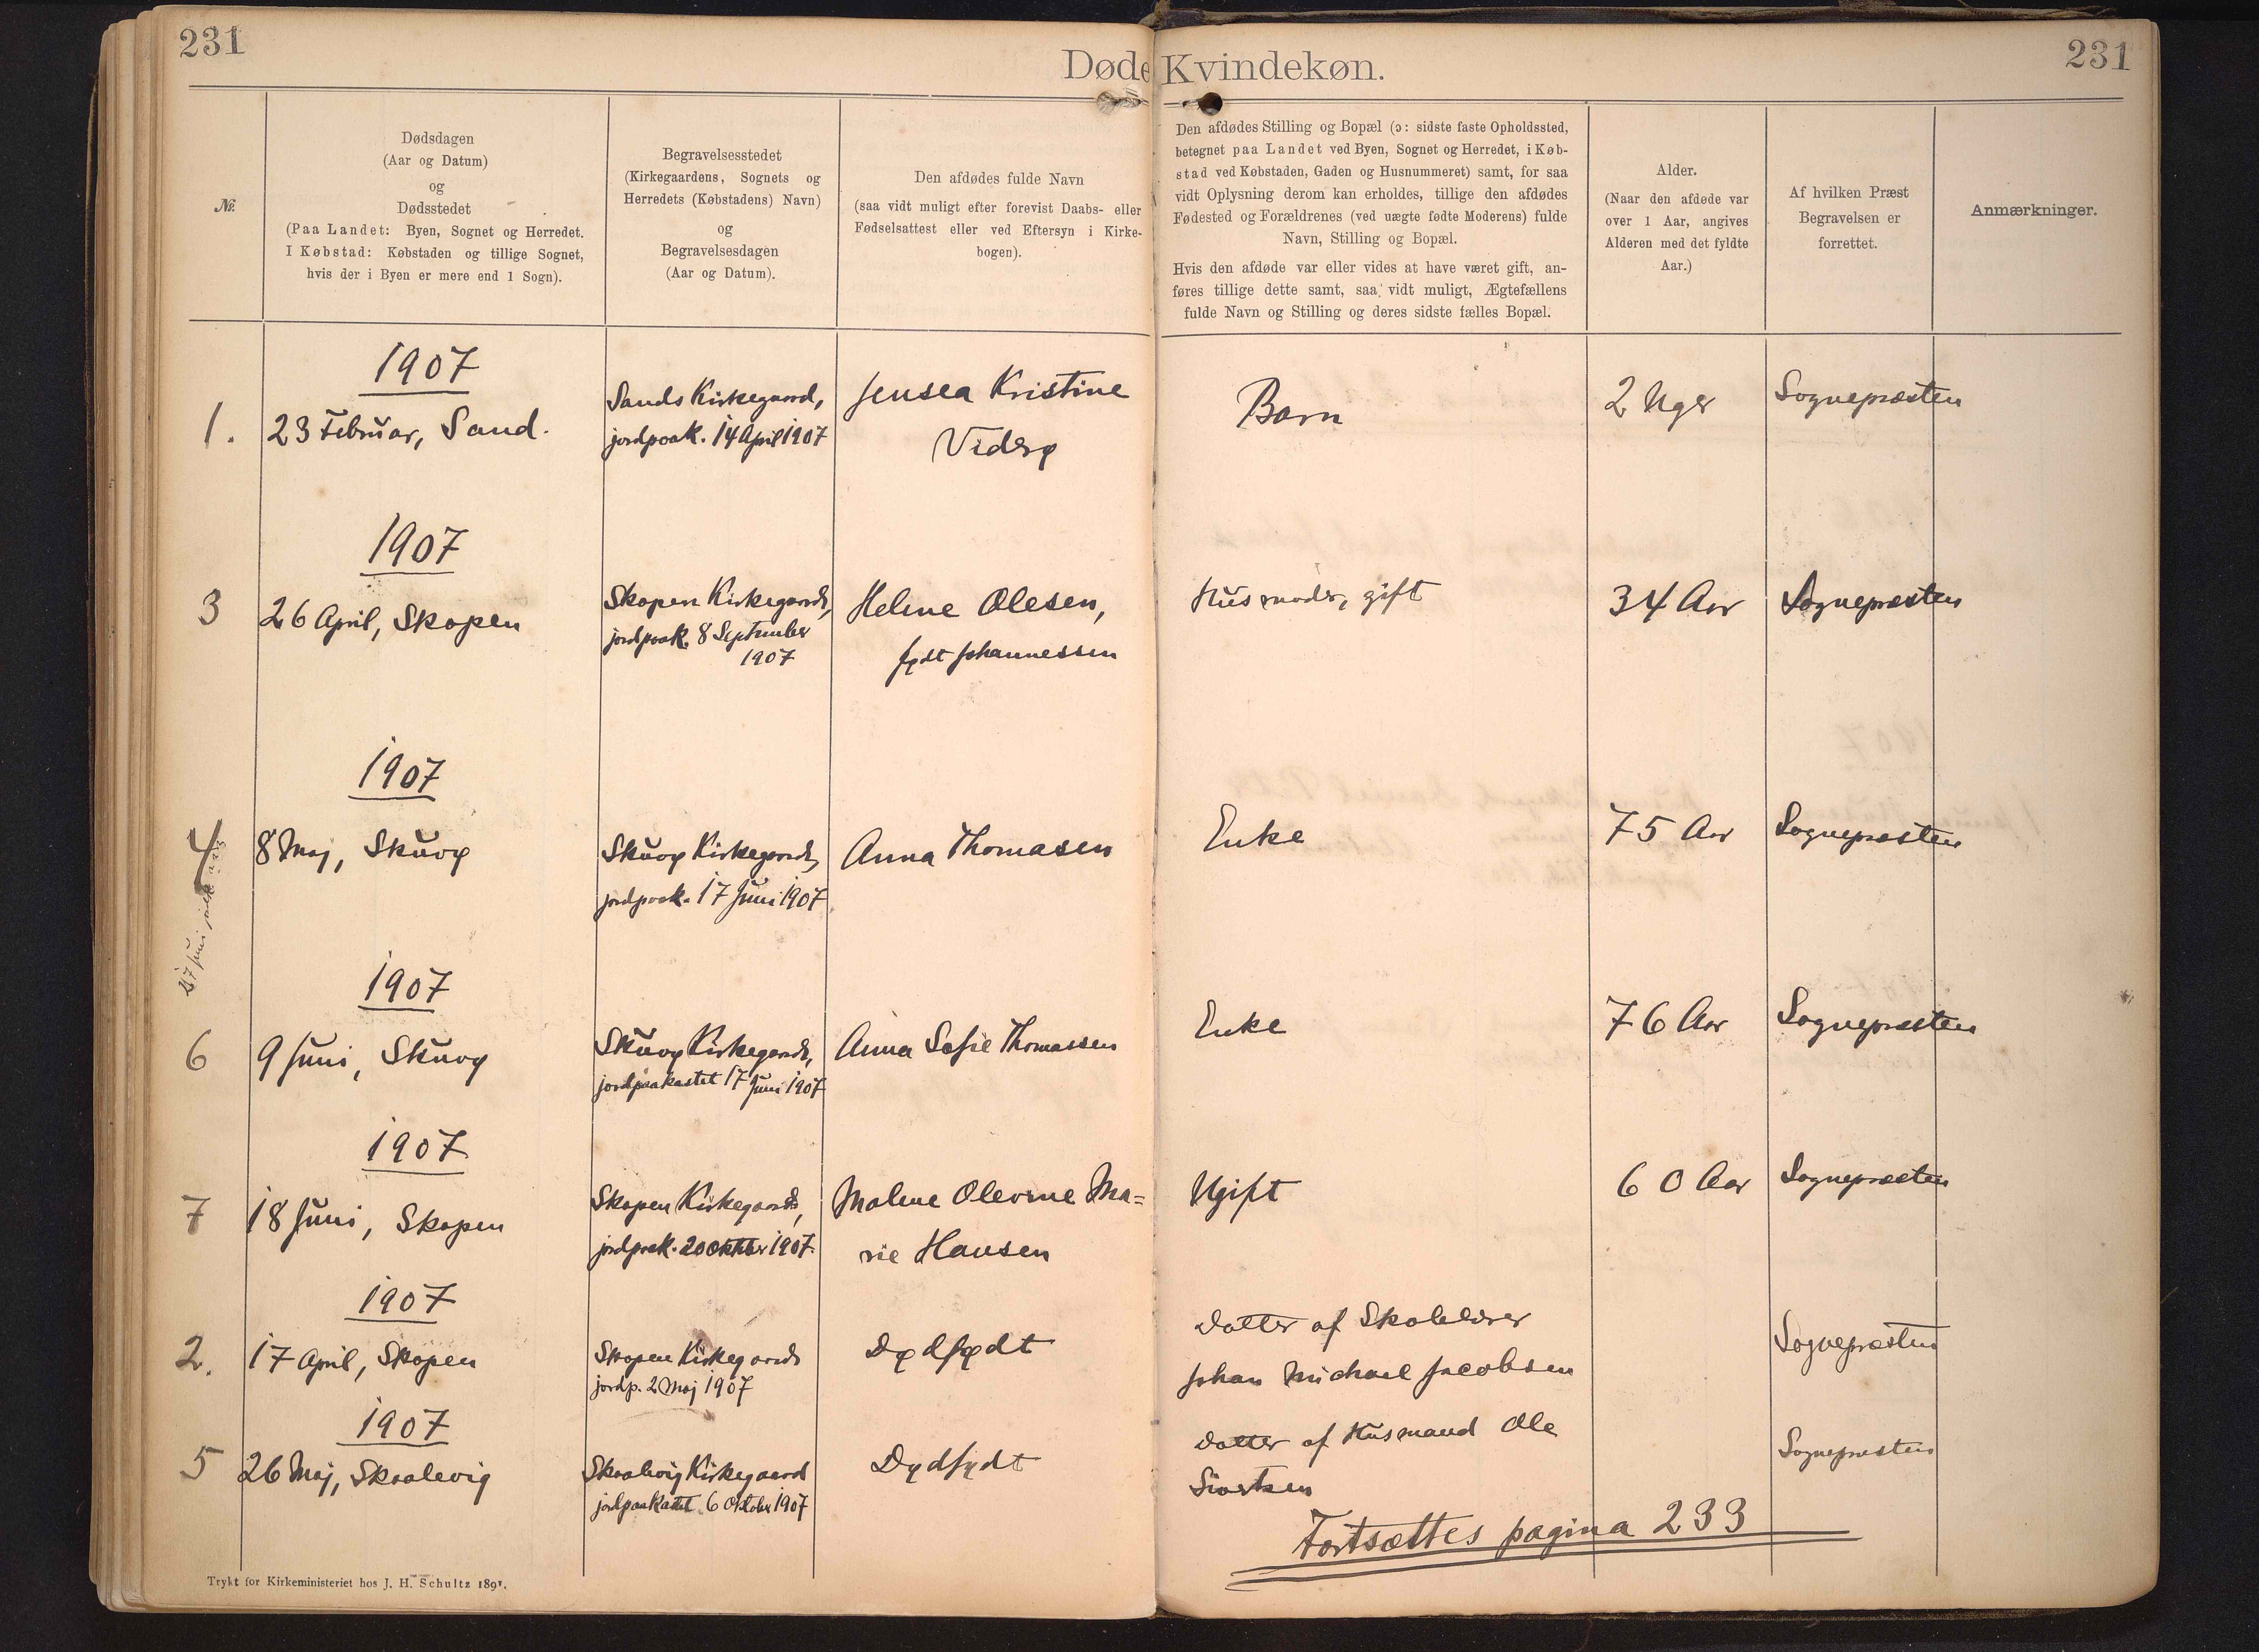 231
Døde Kvindekøn.
231
№.
Dødsdagen
(Aar og Datum)
og
Dødsstedet
(Paa Landet: Byen, Sognet og Herredet.
I Købstad: Købstaden og tillige Sognet,
hvis der i Byen er mere end 1 Sogn).
Begravelsesstedet
(Kirkegaardens, Sognets og
Herredets (Købstadens) Navn)
og
Begravelsesdagen
(Aar og Datum).
Den afdødes fulde Navn
(saa vidt muligt efter forevist Daabs- eller
Fødselsattest eller ved Eftersyn i Kirke-
bogen).
Den afdødes Stilling og Bopæl (ɔ: sidste faste Opholdssted,
betegnet paa Landet ved Byen, Sognet og Herredet, i Køb-
stad ved Købstaden, Gaden og Husnummeret) samt, for saa
vidt Oplysning derom kan erholdes, tillige den afdødes
Fødested og Forældrenes (ved uægte fødte Moderens) fulde
Navn, Stilling og Bopæl.
Hvis den afdøde var eller vides at have været gift, an-
føres tillige dette samt, saa vidt muligt, Ægtefællens
fulde Navn og Stilling og deres sidste fælles Bopæl.
Alder.
(Naar den afdøde var
over 1 Aar, angives
Alderen med det fyldte
Aar.)
Af hvilken Præst
Begravelsen er
forrettet.
Anmærkninger.
1907
1.
23 Februar, Sand.
Sands Kirkegaard,
jordpaak. 14 April 1907
Jensea Kristine
Viderø
Barn
2 Uger
Sognepræsten
1907
3
26 April, Skopen
Skopen Kirkegaard,
jordpaak. 8 September
1907
Helene Olesen,
født Johannessen
Husmoder, gift
34 Aar
Sognepræsten
1907
4
8 Maj, Skuoø
Skuoø Kirkegaard,
jordpaak. 17 Juni 1907
Anna Thomasen
Enke
75 Aar
Sognepræsten
27 Juni
1907
6
9 Juni, Skuoø
Skuoø Kirkegaard,
jordpaakastet 17 Juni 1907
Anna Sofie Thomassen
Enke
76 Aar
Sognepræsten
1907
7
18 Juni, Skopen
Skopen Kirkegaard,
jordpaak. 20 Oktober 1907
Malene Olevine Ma=
rie Hansen
Ugift
60 Aar
Sognepræsten
1907
2.
17 April, Skopen
Skopen Kirkegaard
jordp. 2 Maj 1907
Dødfødt
Datter af Skolelærer
Johan Michael Jacobsen
Sognepræsten
1907
5
26 Maj, Skaalevig
Skaalevig Kirkegaard
jordpaakastet 6 Oktober 1907
Dødfødt
Datter af Husmand Ole
Sivertsen
Sognepræsten
Fortsættes pagina 233
Trykt for Kirkeministeriet hos J. H. Schultz 1891.